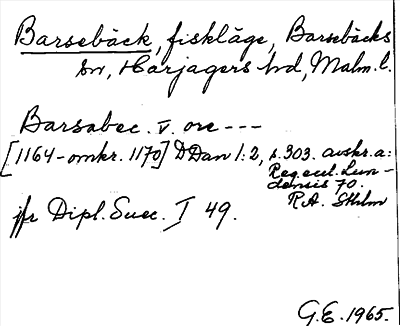 Barsebäck, fiskläge, Barsebäcks
sn, Harjagers hd, Malm. l.
Barsabec. v. ore ---
[1164-omkr. 1170] DDan 1:2, s. 303. avskr. a:
Reg. eccl. Lun-
densis 70.
R.A. Sthlm
jfr Dipl. Suec. I 49.
G.E. 1965.